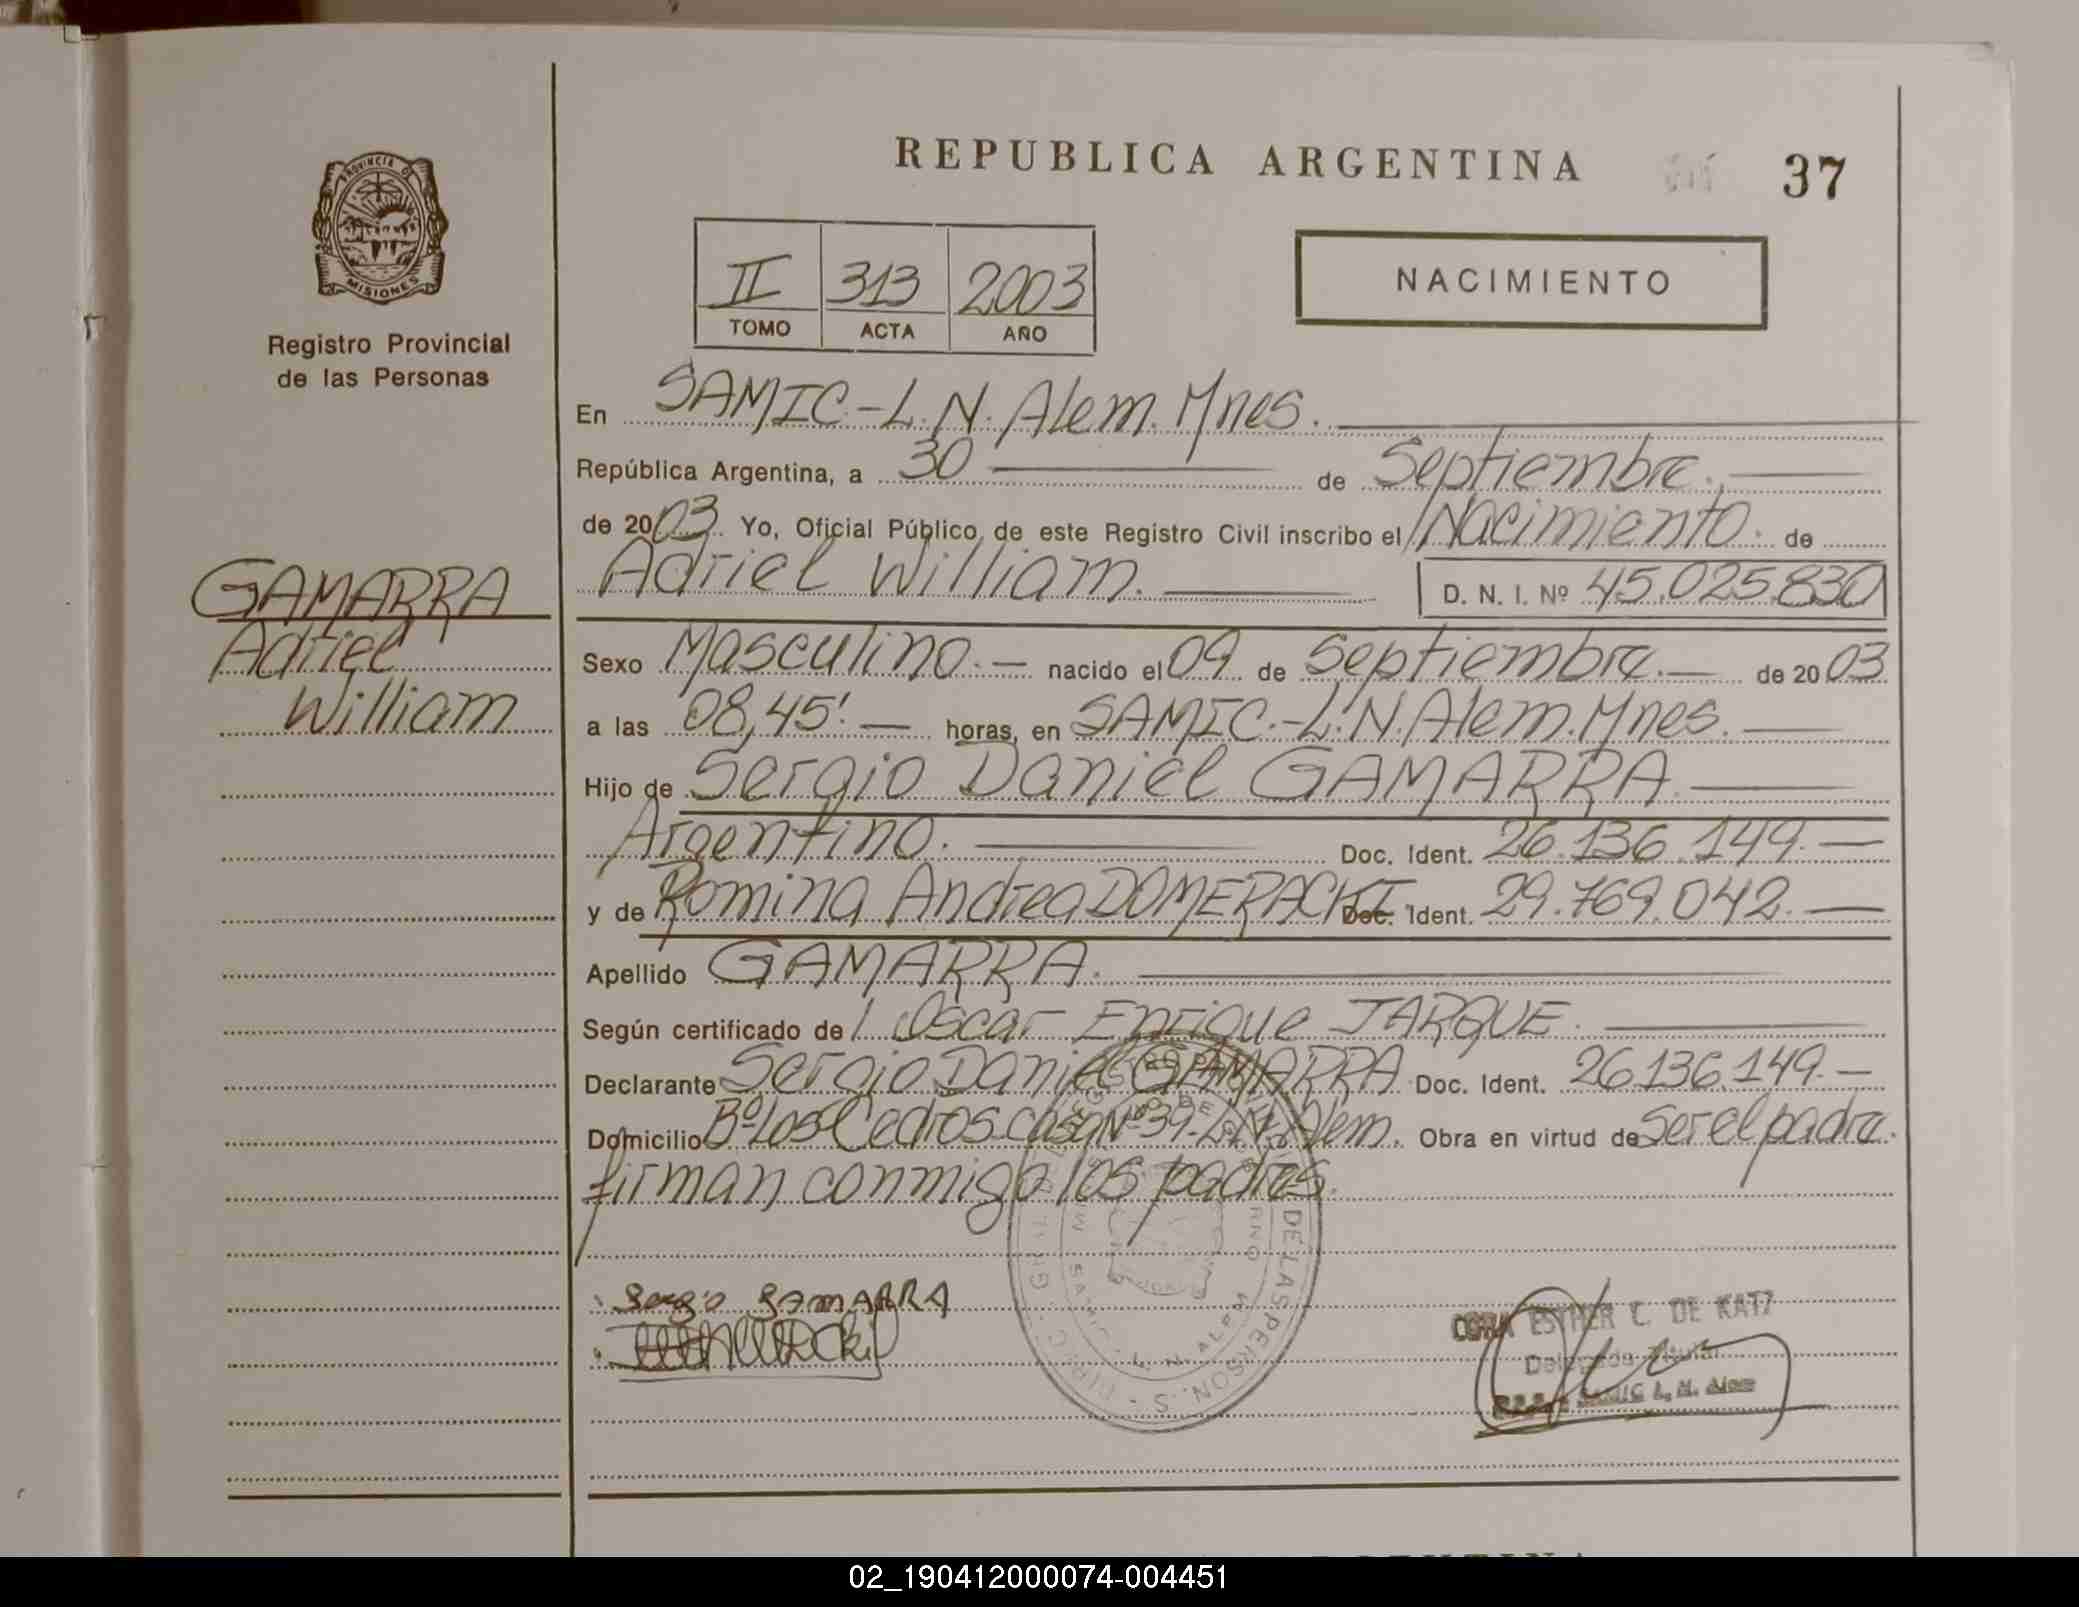 REPUBLICA ARGENTINA 37
PROVINCIA DE
MISIONES
Registro Provincial
de las Personas
II 313 2003
TOMO ACTA AÑO
NACIMIENTO
En SAMIC-L.N. Alem. Mnes.
República Argentina, a 30 de Septiembre.
de 2003 Yo, Oficial Público de este Registro Civil inscribo el Nacimiento. de
Adriel William. D. N. I. Nº 45.025.830
GAMARRA
Adriel
William
Sexo Masculino.- nacido el 09 de Septiembre.- de 2003
a las 08,45'. horas, en SAMIC.-L.N. Alem. Mnes.
Hijo de Sergio Daniel GAMARRA
Argentino. Doc. Ident. 26.136.149.-
y de Romina Andrea DOMERACKI Doc. Ident. 29.769.042.-
Apellido GAMARRA.
Según certificado de Oscar Enrique JARQUE.
Declarante Sergio Daniel GAMARRA Doc. Ident. 26.136.149.-
Domicilio Bº Los Cedros casa Nº 39-L.N. Alem. Obra en virtud de Ser el padre.
firman conmigo los padres.
DE LAS PERSON.S
L. N. ALEM
Sergio GAMARRA
ESTHER C. DE KATZ
Delegada Titular
SAMIC L. N. Alem
02_190412000074-004451